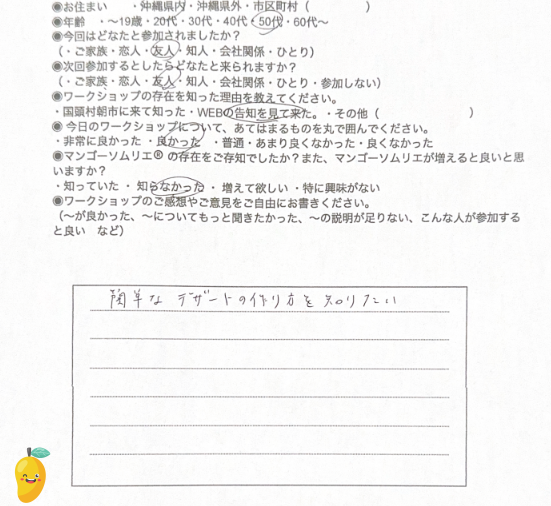 ◉お住まい　・沖縄県内・沖縄県外・市区町村（　　　　　）
◉年齢　・〜19歳・20代・30代・40代・50代・60代〜
◉今回はどなたと参加されましたか？
（・ご家族・恋人・友人・知人・会社関係・ひとり）
◉次回参加するとしたらどなたと来られますか？
（・ご家族・恋人・友人・知人・会社関係・ひとり・参加しない）
◉ワークショップの存在を知った理由を教えてください。
・国頭村朝市に来て知った・WEBの告知を見て来た。・その他（　　　　　　　　）
◉ 今日のワークショップについて、あてはまるものを丸で囲んでください。
・非常に良かった ・良かった　・普通・あまり良くなかった・良くなかった
◉マンゴーソムリエ® の存在をご存知でしたか？また、マンゴーソムリエが増えると良いと思
いますか？
・知っていた ・ 知らなかった ・ 増えて欲しい ・特に興味がない
◉ワークショップのご感想やご意見をご自由にお書きください。
（〜が良かった、〜についてもっと聞きたかった、〜の説明が足りない、こんな人が参加する
と良い　など）
簡単な デザートの作り方を 知りたい